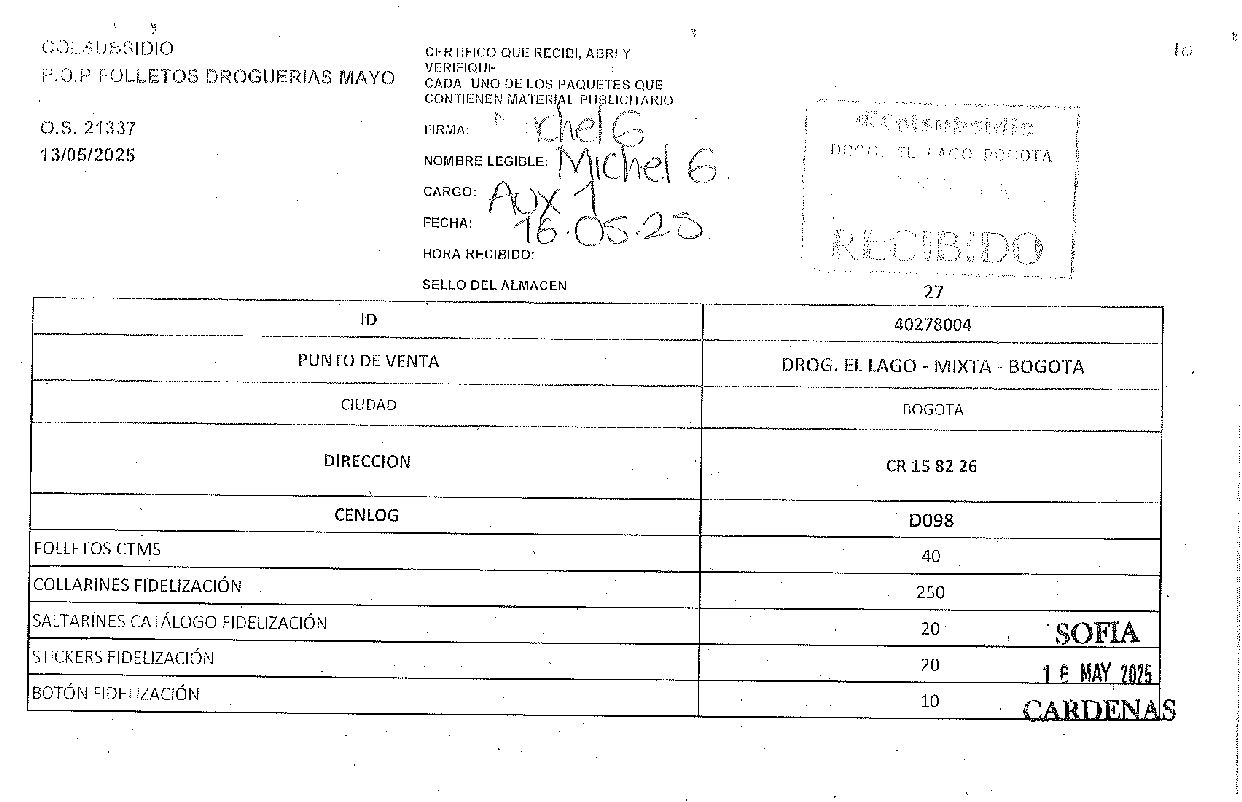 COLSUBSIDIO
P.O.P FOLLETOS DROGUERIAS MAYO
O.S. 21337
13/05/2025
CERTIFICO QUE RECIBI, ABRI Y
VERIFIQUE
CADA UNO DE LOS PAQUETES QUE
CONTIENEN MATERIAL PUBLICITARIO
FIRMA: Michel G
NOMBRE LEGIBLE: Michel G.
CARGO: Aux 1
FECHA: 16.05.25
HORA RECIBIDO:
SELLO DEL ALMACEN
10
Colsubsidio
DROG. EL LAGO BOGOTA
RECIBIDO
27
ID 40278004
PUNTO DE VENTA DROG. EL LAGO - MIXTA - BOGOTA
CIUDAD BOGOTA
DIRECCION CR 15 82 26
CENLOG D098
FOLLETOS CTMS 40
COLLARINES FIDELIZACIÓN 250
SALTARINES CATÁLOGO FIDELIZACIÓN 20
STICKERS FIDELIZACIÓN 20
BOTÓN FIDELIZACIÓN 10
SOFIA
16 MAY 2025
CARDENAS